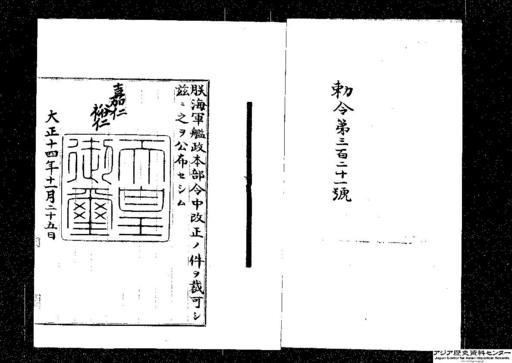 勅令第三百二十一號
朕海軍艦政本部令中改正ノ件ヲ裁可シ
茲ニ之ヲ公布セシム
嘉仁
裕仁
天皇
御璽
大正十四年十一月二十五日
アジア歴史資料センター
Japan Center for Asian Historical Records